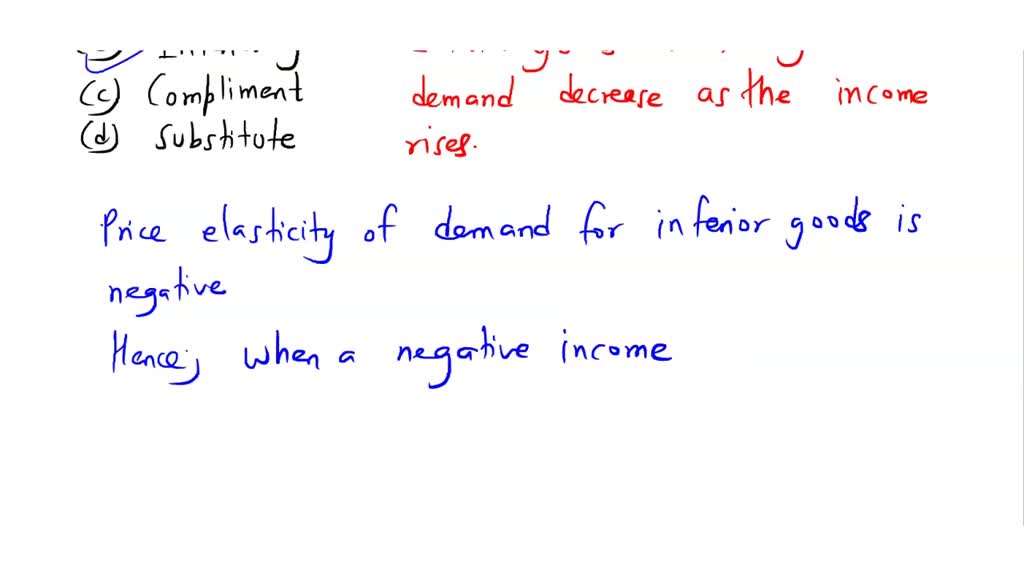 (c) Compliment
demand decrease as the income
(d) Substitute
rises.
Price elasticity of demand for inferior goods is
negative
Hence, when a negative income